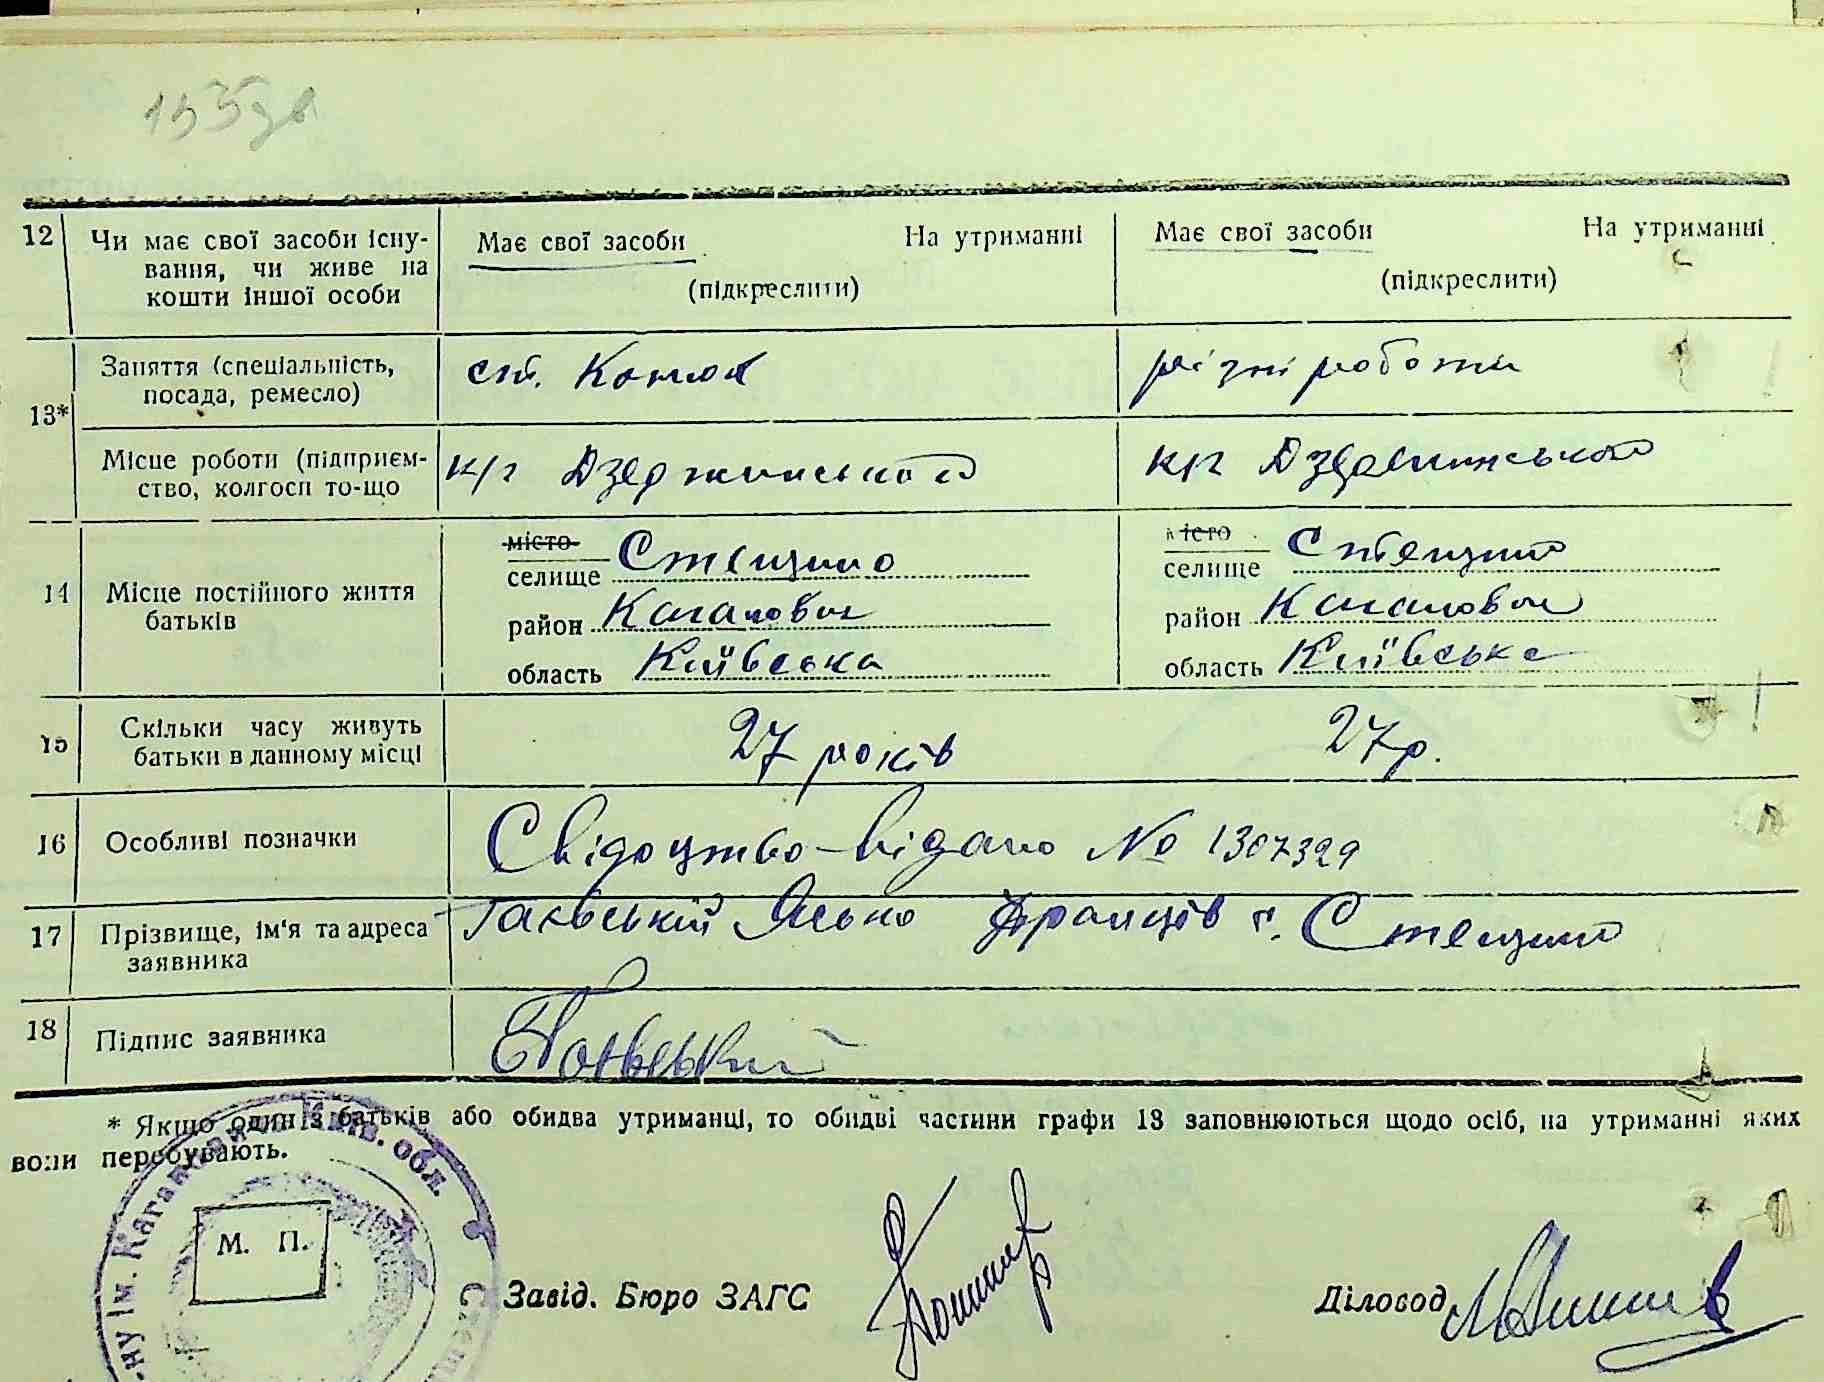 12 Чи має свої засоби існу-
вання, чи живе на
кошти іншої особи
Має свої засоби На утриманні
(підкреслити)
Має свої засоби На утриманні
(підкреслити)
13* Заняття (спеціальність,
посада, ремесло)
ст. Конюх
різні роботи
Місце роботи (підприєм-
ство, колгосп то-що
к/г Дзержинського
к/г Дзержинського
14 Місце постійного життя
батьків
місто
селище Стещино
район Каганович
область Київська
місто
селище Стещино
район Каганович
область Київська
15 Скільки часу живуть
батьки в данному місці
27 років
27 р.
16 Особливі позначки
Свідоцтво видано № 1307329
17 Прізвище, ім'я та адреса
заявника
Франців с. Стещино
18 Підпис заявника
* Якщо один із батьків або обидва утриманці, то обидві частини графи 13 заповнюються щодо осіб, на утриманні яких
вони перебувають.
М. П.
Київ. обл.
ім. Каганович
Завід. Бюро ЗАГС
Діловод